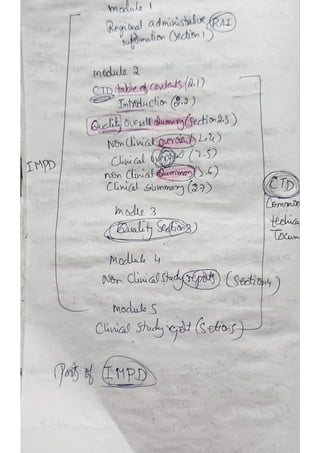 module 1
Regional administrative RAI
information (section 1)
module 2
CTD table of contents (2.1)
Introduction (2.2)
Quality overall summary (Section 2.3)
Non Clinical overview 2.4)
Clinical overview (2.5)
non Clinical summary 2.6)
Clinical Summary (2.7)
IMPD
CTD
Common
Module 3
Quality Section 3)
Module 4
Non Clinical study reports (Section 4)
Module 5
Clinical Study report (Section 5)
Parts of IMPD